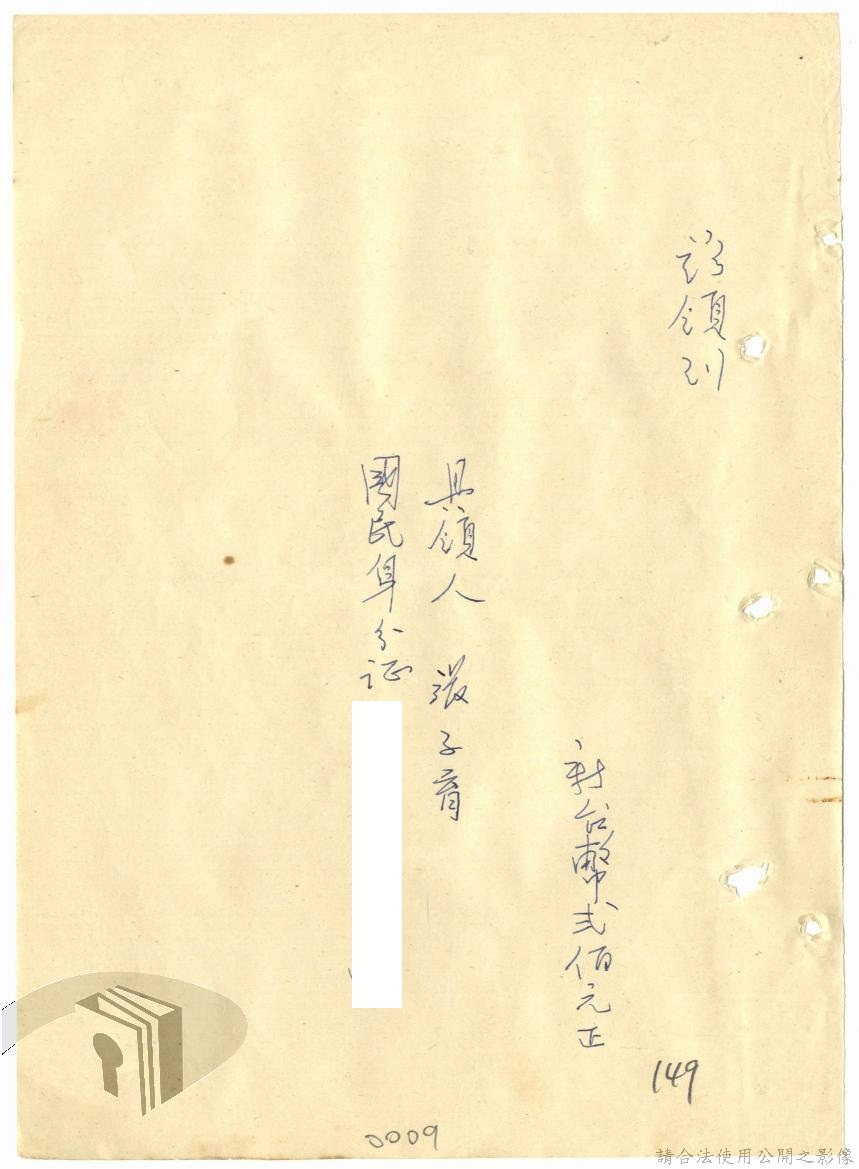 茲領到
新台幣弍佰元正
具領人 張子育
國民身分证
149
0009
請合法使用公開之影像